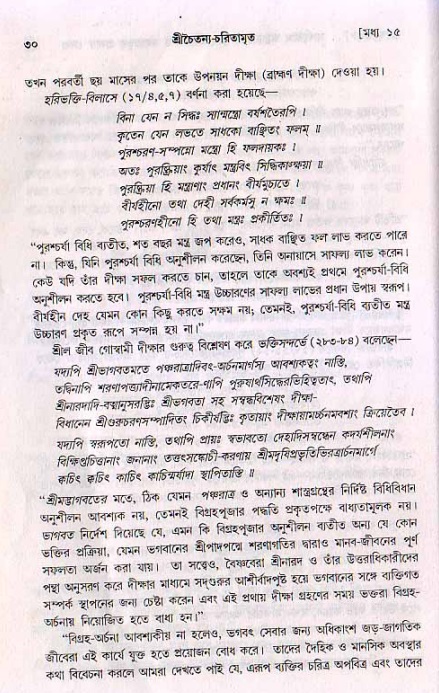 ৩০ শ্রীচৈতন্য-চরিতামৃত [মধ্য ১৫
তখন পরবর্তী ছয় মাসের পর তাকে উপনয়ন দীক্ষা (ব্রাহ্মণ দীক্ষা) দেওয়া হয়।
হরিভক্তি-বিলাসে (১৭/৪,৫,৭) বর্ণনা করা হয়েছে—
বিনা যেন ন সিদ্ধঃ স্যান্মন্ত্রো বর্ষশতৈরপি ।
কৃতেন যেন লভতে সাধকো বাঞ্ছিতং ফলম্ ॥
পুরশ্চরণ-সম্পন্নো মন্ত্রো হি ফলদায়কঃ ।
অতঃ পুরস্ক্রিয়াং কুর্যাৎ মন্ত্রবিৎ সিদ্ধিকাঙ্ক্ষয়া ॥
পুরস্ক্রিয়া হি মন্ত্রাণাং প্রধানং বীর্যমুচ্যতে ।
বীর্যহীনো তথা দেহী সর্বকর্মসু ন ক্ষমঃ ॥
পুরশ্চরণহীনো হি তথা মন্ত্রঃ প্রকীর্তিতঃ ।
“পুরশ্চর্যা বিধি ব্যতীত, শত বছর মন্ত্র জপ করেও, সাধক বাঞ্ছিত ফল লাভ করতে পারে
না। কিন্তু, যিনি পুরশ্চর্যা বিধি অনুশীলন করেছেন, তিনি অনায়াসে সাফল্য লাভ করেন।
কেউ যদি তাঁর দীক্ষা সফল করতে চান, তাহলে তাকে অবশ্যই প্রথমে পুরশ্চর্যা-বিধি
অনুশীলন করতে হবে। পুরশ্চর্যা-বিধি মন্ত্র উচ্চারণের সাফল্য লাভের প্রধান উপায় স্বরূপ।
বীর্যহীন দেহ যেমন কোন কিছু করতে সক্ষম নয়; তেমনই, পুরশ্চর্যা-বিধি ব্যতীত মন্ত্র
উচ্চারণ প্রকৃত রূপে সম্পন্ন হয় না।”
শ্রীল জীব গোস্বামী দীক্ষার গুরুত্ব বিশ্লেষণ করে ভক্তিসন্দর্ভে (২৮৩-৮৪) বলেছেন—
যদ্যপি শ্রীভাগবতমতে পঞ্চরাত্রাদিবৎ-অর্চনমার্গস্য আবশ্যকত্বং নাস্তি,
তদ্বিনাপি শরণাপত্ত্যাদীনামেকতরে-ণাপি পুরুষার্থসিদ্ধেরভিহিতত্বাৎ, তথাপি
শ্রীনারদাদি-বর্ত্মানুসরদ্ভিঃ শ্রীভগবতা সহ সম্বন্ধবিশেষং দীক্ষা-
বিধানেন শ্রীগুরুচরণসম্পাদিতং চিকীর্ষদ্ভিঃ কৃতায়াং দীক্ষায়ামর্চ্চনমবশ্যং ক্রিয়েতৈব ।
যদ্যপি স্বরূপতো নাস্তি, তথাপি প্রায়ঃ স্বভাবতো দেহাদিসম্বন্ধেন কদর্যশীলনাং
বিক্ষিপ্তচিত্তানাং জনানাং তত্তৎসঙ্কোচী-করণায় শ্রীমদৃষিপ্রভৃতিভিরত্রার্চনমার্গে
কচিৎ কচিৎ কাচিৎ কাচিন্মর্যাদা স্থাপিতাস্তি ॥
“শ্রীমদ্ভাগবতের মতে, ঠিক যেমন পঞ্চরাত্র ও অন্যান্য শাস্ত্রগ্রন্থের নির্দিষ্ট বিধিবিধান
অনুশীলন আবশ্যক নয়, তেমনই বিগ্রহপূজার পদ্ধতি প্রকৃতপক্ষে বাধ্যতামূলক নয়।
ভাগবত নির্দেশ দিয়েছে যে, এমন কি বিগ্রহপূজার অনুশীলন ব্যতীত অন্য যে কোন
ভক্তির প্রক্রিয়া, যেমন ভগবানের শ্রীপাদপদ্মে শরণাগতির দ্বারাও মানব-জীবনের পূর্ণ
সফলতা অর্জন করা যায়। তা সত্ত্বেও, বৈষ্ণবেরা শ্রীনারদ ও তাঁর উত্তরাধিকারীদের
পন্থা অনুসরণ করে দীক্ষার মাধ্যমে সদ্গুরুর আশীর্বাদপুষ্ট হয়ে ভগবানের সঙ্গে ব্যক্তিগত
সম্পর্ক স্থাপনের জন্য চেষ্টা করেন এবং এই প্রথায় দীক্ষা গ্রহণের সময় ভক্তরা বিগ্রহ-
অর্চনায় নিয়োজিত হতে বাধ্য হন।”
“বিগ্রহ-অর্চনা আবশ্যকীয় না হলেও, ভগবৎ সেবার জন্য অধিকাংশ জড়-জাগতিক
জীবেরা এই কার্যে যুক্ত হতে প্রয়োজন বোধ করে। তাদের দৈহিক ও মানসিক অবস্থার
কথা বিবেচনা করলে আমরা দেখতে পাই যে, এরূপ ব্যক্তির চরিত্র অপবিত্র এবং তাদের